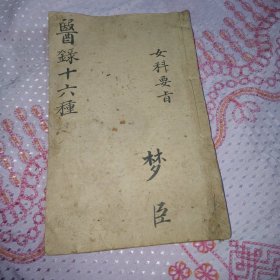 醫錄十六種
女科要旨
梦臣